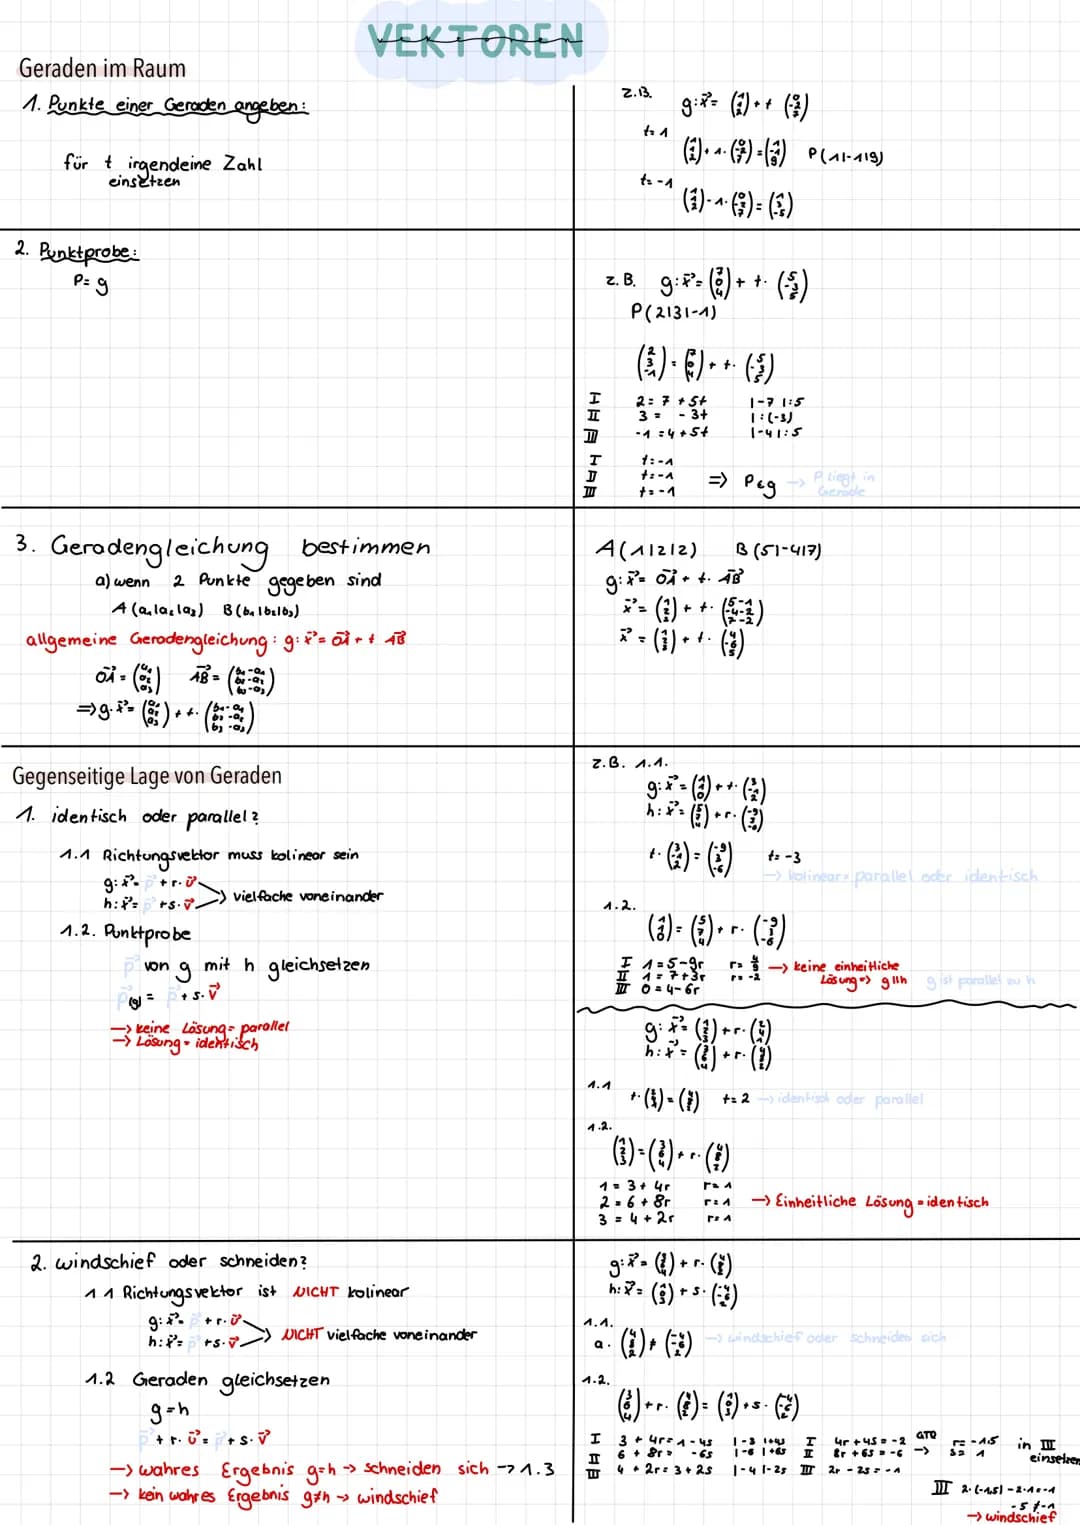 VEKTOREN
Geraden im Raum
1. Punkte einer Geraden angeben:
für t irgendeine Zahl
einsetzen
z.B.
t=1
P(1|-1|9)
t=-1
2. Punktprobe:
P=g
z.B.
P(2|3|-1)
I 2=7+5t |-7 |:5
II 3= -3t |:(-3)
III -1=4+5t |-4 |:5
I t=-1
II t=-1
III t=-1
=> P∈g → P liegt in
Gerade
3. Geradengleichung bestimmen
a) wenn 2 Punkte gegeben sind
A(a₁|a₂|a₃) B(b₁|b₂|b₃)
allgemeine Geradengleichung: g:x⃗=OA⃗+t AB⃗
A(1|2|2) B(5|-4|7)
g:x⃗=OA⃗+t·AB⃗
Gegenseitige Lage von Geraden
1. identisch oder parallel?
1.1 Richtungsvektor muss kolinear sein
g:x⃗=p⃗+r·u⃗
h:x⃗=p⃗+s·v⃗
vielfache voneinander
1.2. Punktprobe
p⃗ von g mit h gleichsetzen
p⃗(g)=p⃗+s·v⃗
→ keine Lösung= parallel
→ Lösung= identisch
z.B. 1.1.
t=-3
→ kolinear= parallel oder identisch
1.2.
I 1=5-9r r=4/9
II 1=7+3r r=-2
III 0=4-6r
→ keine einheitliche
Lösung=> g||h
g ist parallel zu h
1.1
t=2 → identisch oder parallel
1.2.
1=3+4r r=1
2=6+8r r=1
3=4+2r r=1
→ Einheitliche Lösung=identisch
2. windschief oder schneiden?
1 1 Richtungsvektor ist NICHT kolinear
g:x⃗=p⃗+r·u⃗
h:x⃗=p⃗+s·v⃗
NICHT vielfache voneinander
1.2 Geraden gleichsetzen
g=h
p⃗+r·u⃗=p⃗+s·v⃗
→ wahres Ergebnis g=h → schneiden sich → 1.3
→ kein wahres Ergebnis g≠h → windschief
1.1.
→ windschief oder schneiden sich
1.2.
I 3+4r=1-4s |-3 |+4s I 4r+4s=-2
II 6+8r= -6s |-6 |+6s II 8r+6s=-6
III 4+2r=3+2s |-4 |-2s III 2r-2s=-1
GTR
→ r=-1,5
s=1
in III
einsetzen
III 2·(-1,5)-2·1=-1
-5≠-1
→ windschief